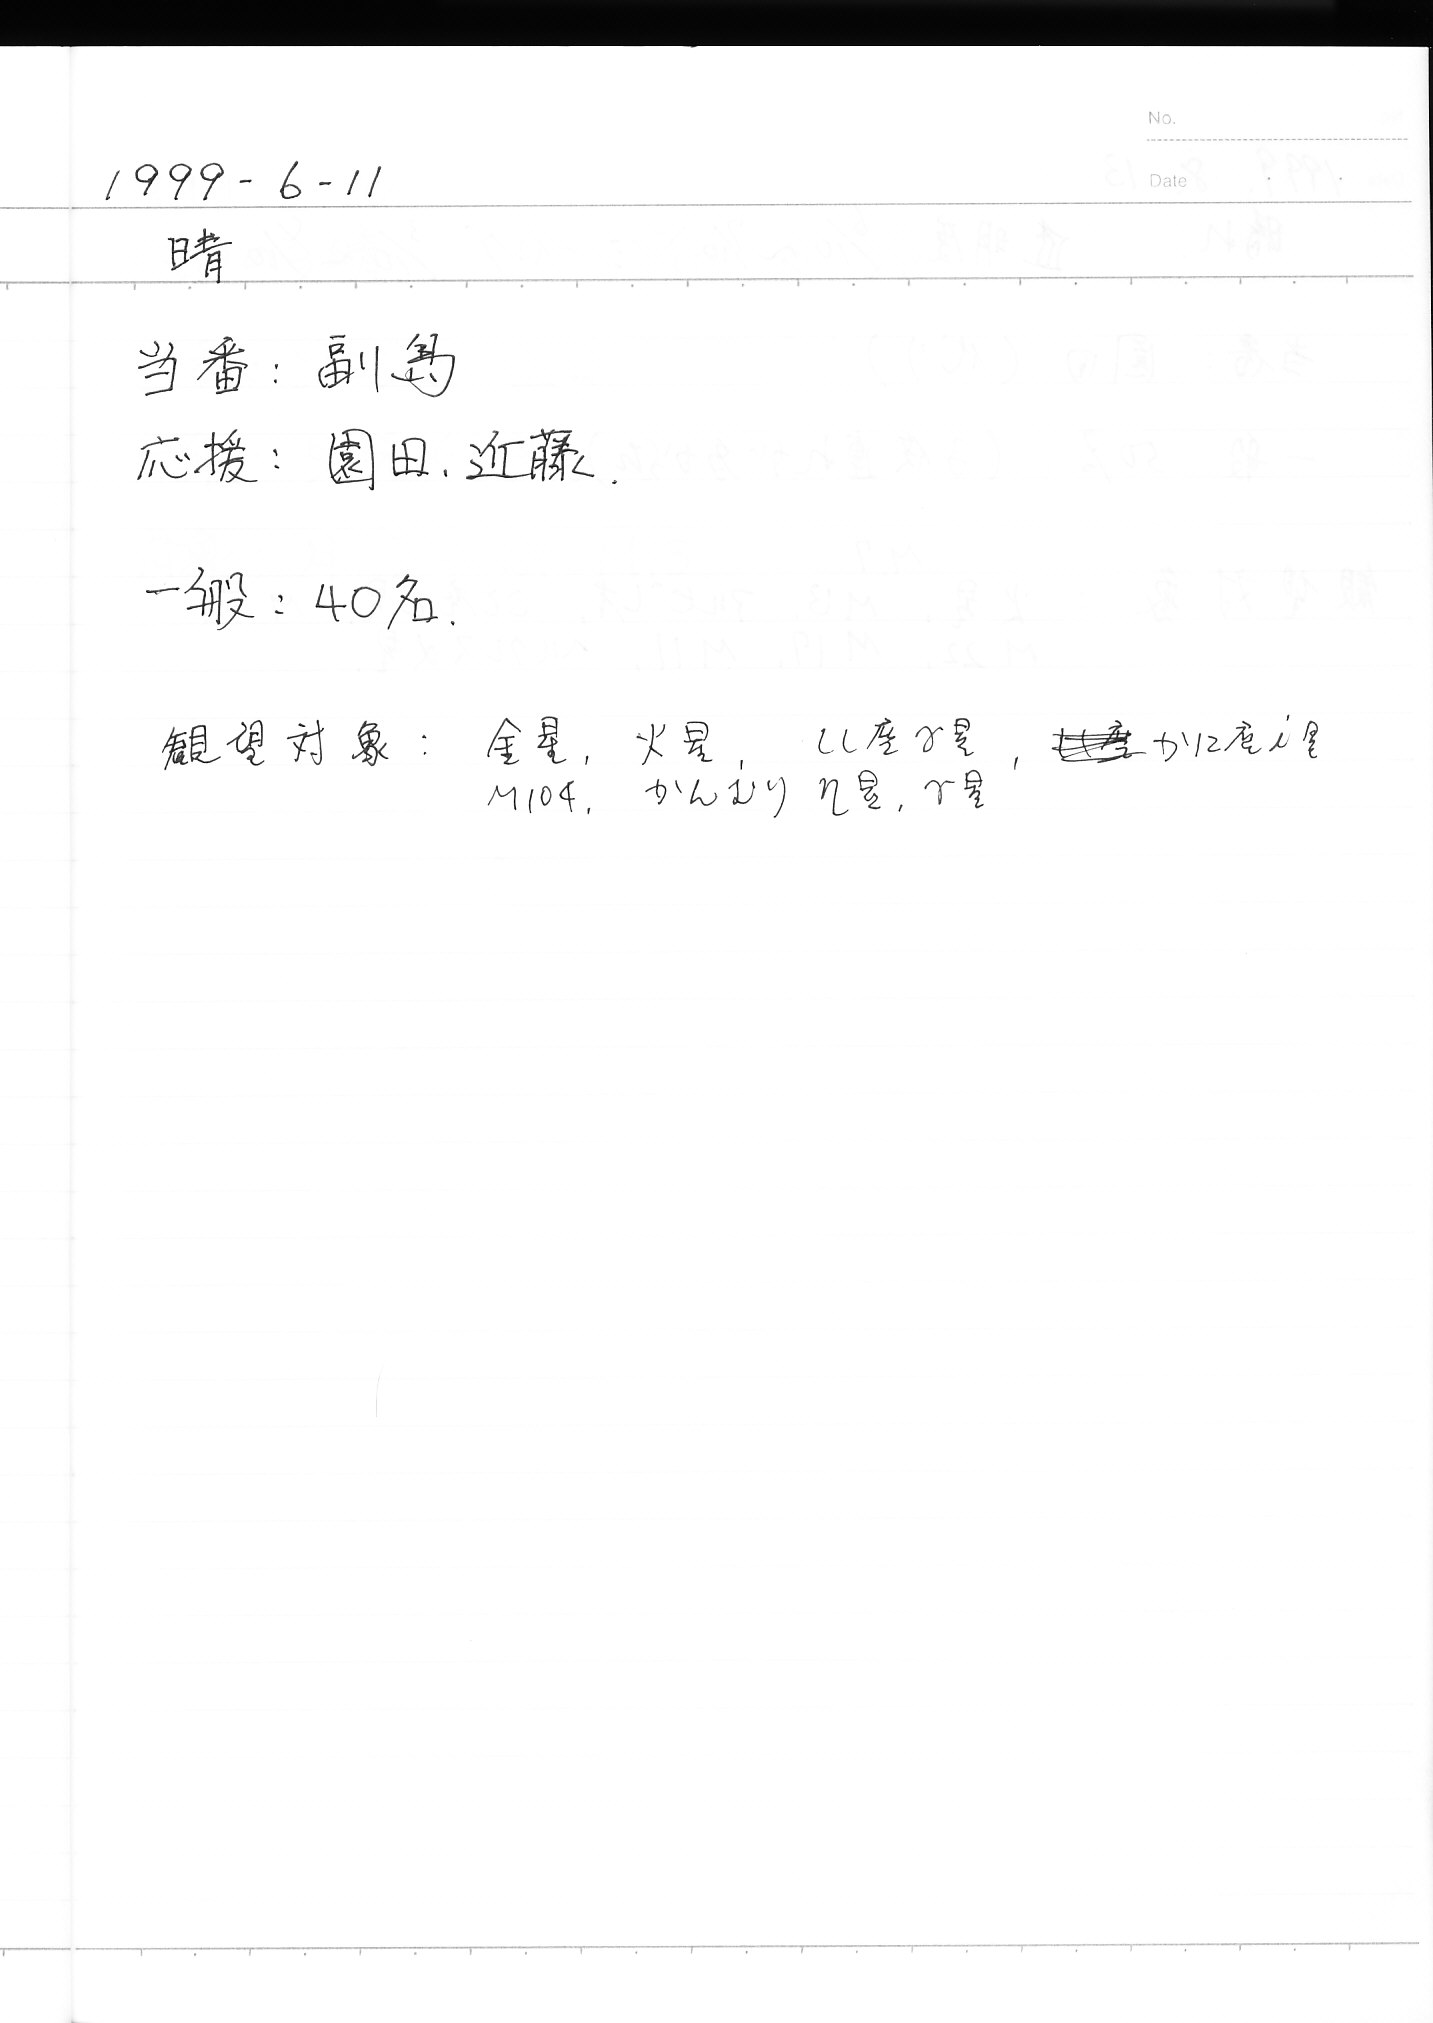 No.
Date
1999-6-11
晴
当番: 副島
応援: 園田. 近藤.
一般: 40名.
観望対象: 金星, 火星, しし座γ星, かに座i星
M104, かんむりη星, γ星